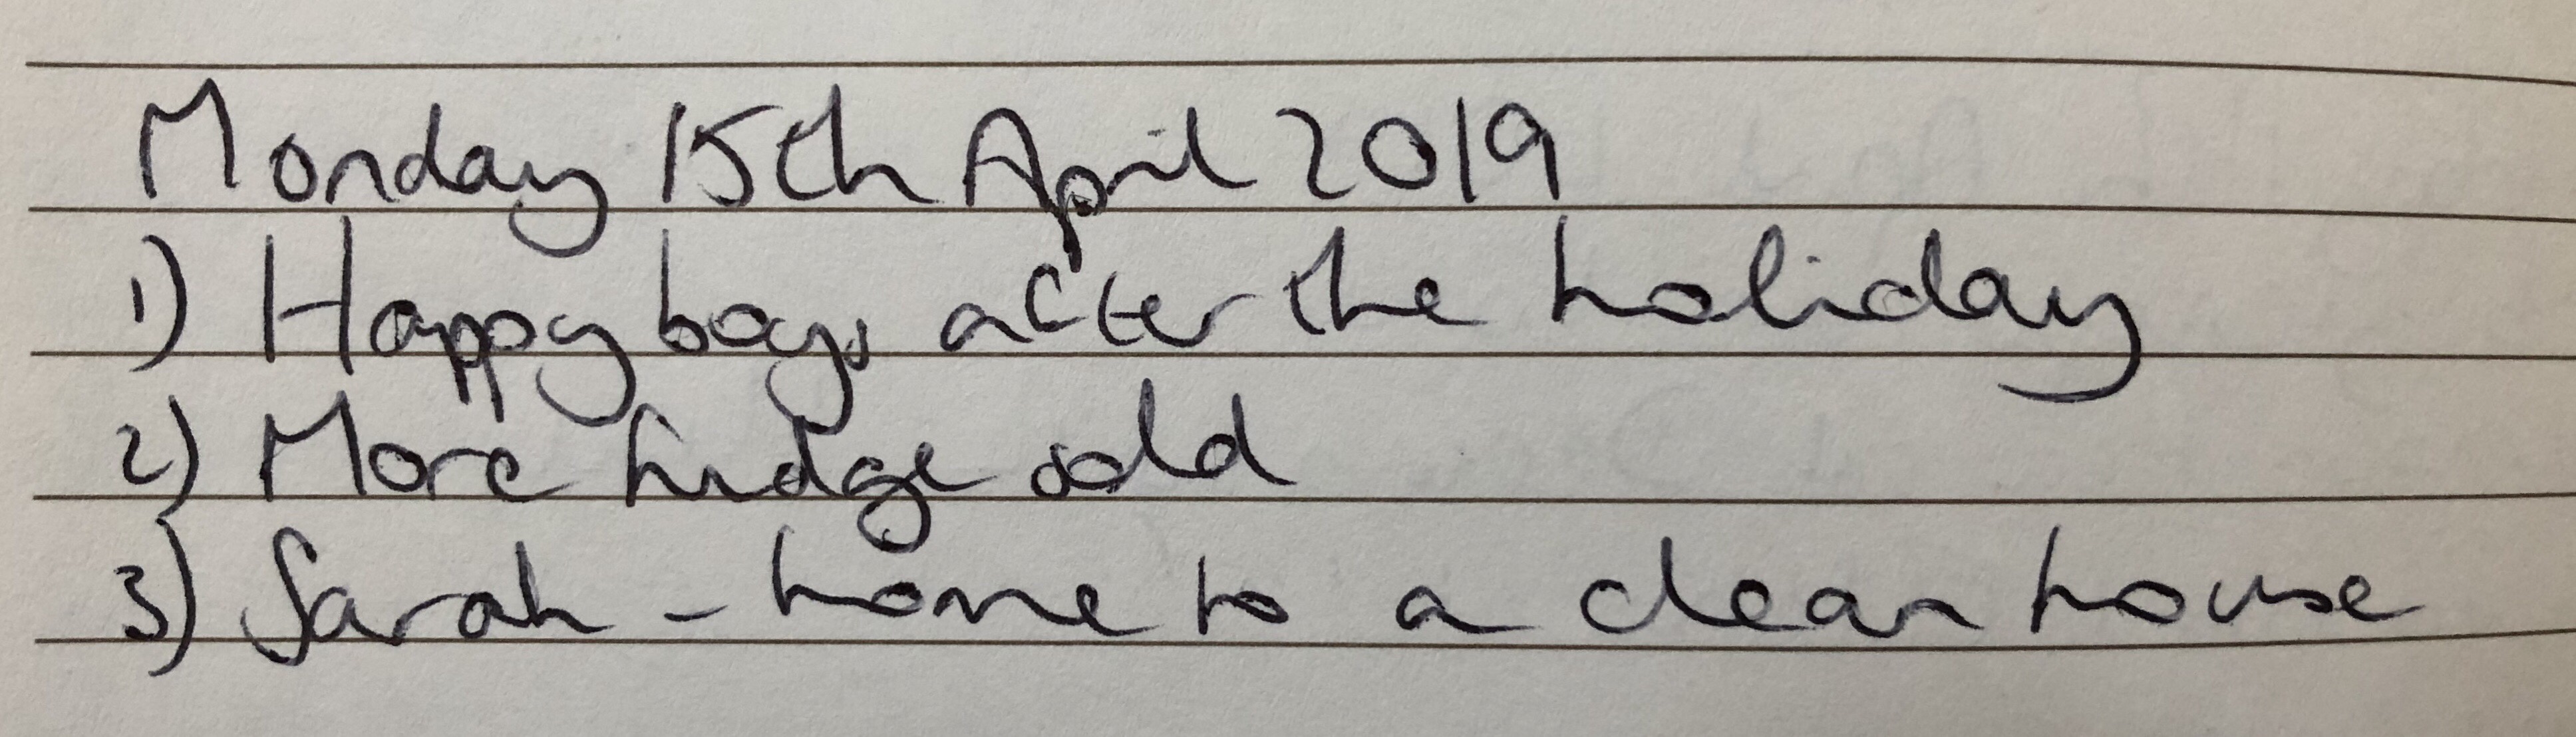 Monday 15th April 2019
1) Happy boys after the holiday
2) More fudge sold
3) Sarah - home to a clean house